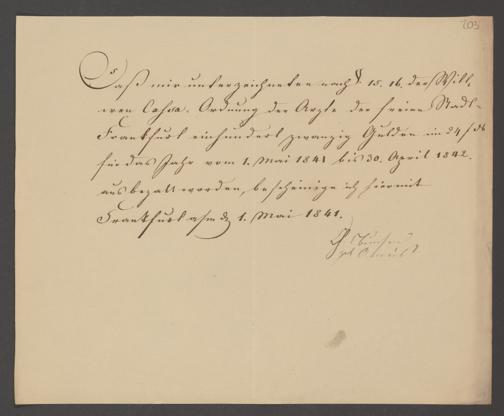 203
Daß mir unterzeichneten nach §. 15. 16. der Witt-
wen Cassa. Ordnung der Ärzte der freien Stadt
Frankfurt einhundert zwanzig Gulden im 24 f
für das Jahr vom 1. Mai 1841 bis 30. April 1842.
ausbezalt worden, bescheinige ich hiermit
Frankfurt a/m d 1. Mai 1841.
Bunsen
geb